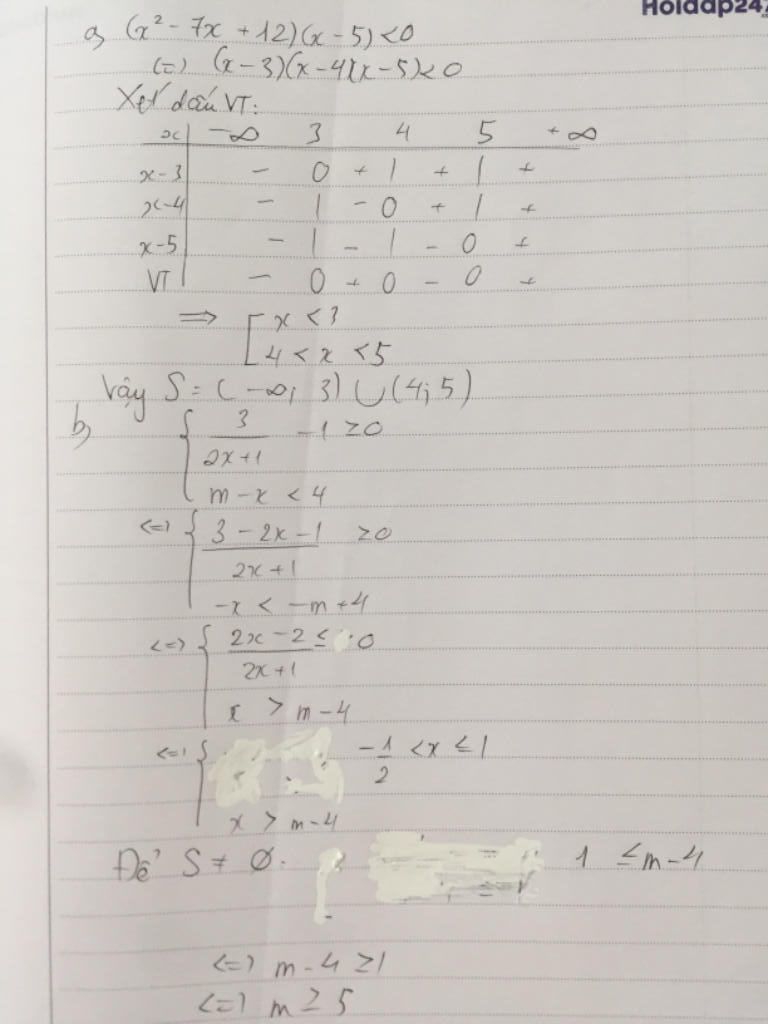 Hoidap247
a) (x² - 7x + 12)(x - 5) < 0
(=) (x - 3)(x - 4)(x - 5) < 0
Xét dấu VT:
x | -∞ 3 4 5 +∞
x-3 | - 0 + | + | +
x-4 | - | - 0 + | +
x-5 | - | - | - 0 +
VT | - 0 + 0 - 0 +
=> [ x < 3
[ 4 < x < 5
Vậy S = (-∞; 3) ∪ (4; 5)
b) { 3/(2x+1) - 1 ≥ 0
{ m - x < 4
<=> { (3 - 2x - 1)/(2x+1) ≥ 0
{ -x < -m + 4
<=> { (2x - 2)/(2x+1) ≤ 0
{ x > m - 4
<=> { -1/2 < x ≤ 1
{ x > m - 4
Để S ≠ ∅. 1 ≤ m - 4
<=> m - 4 ≥ 1
<=> m ≥ 5